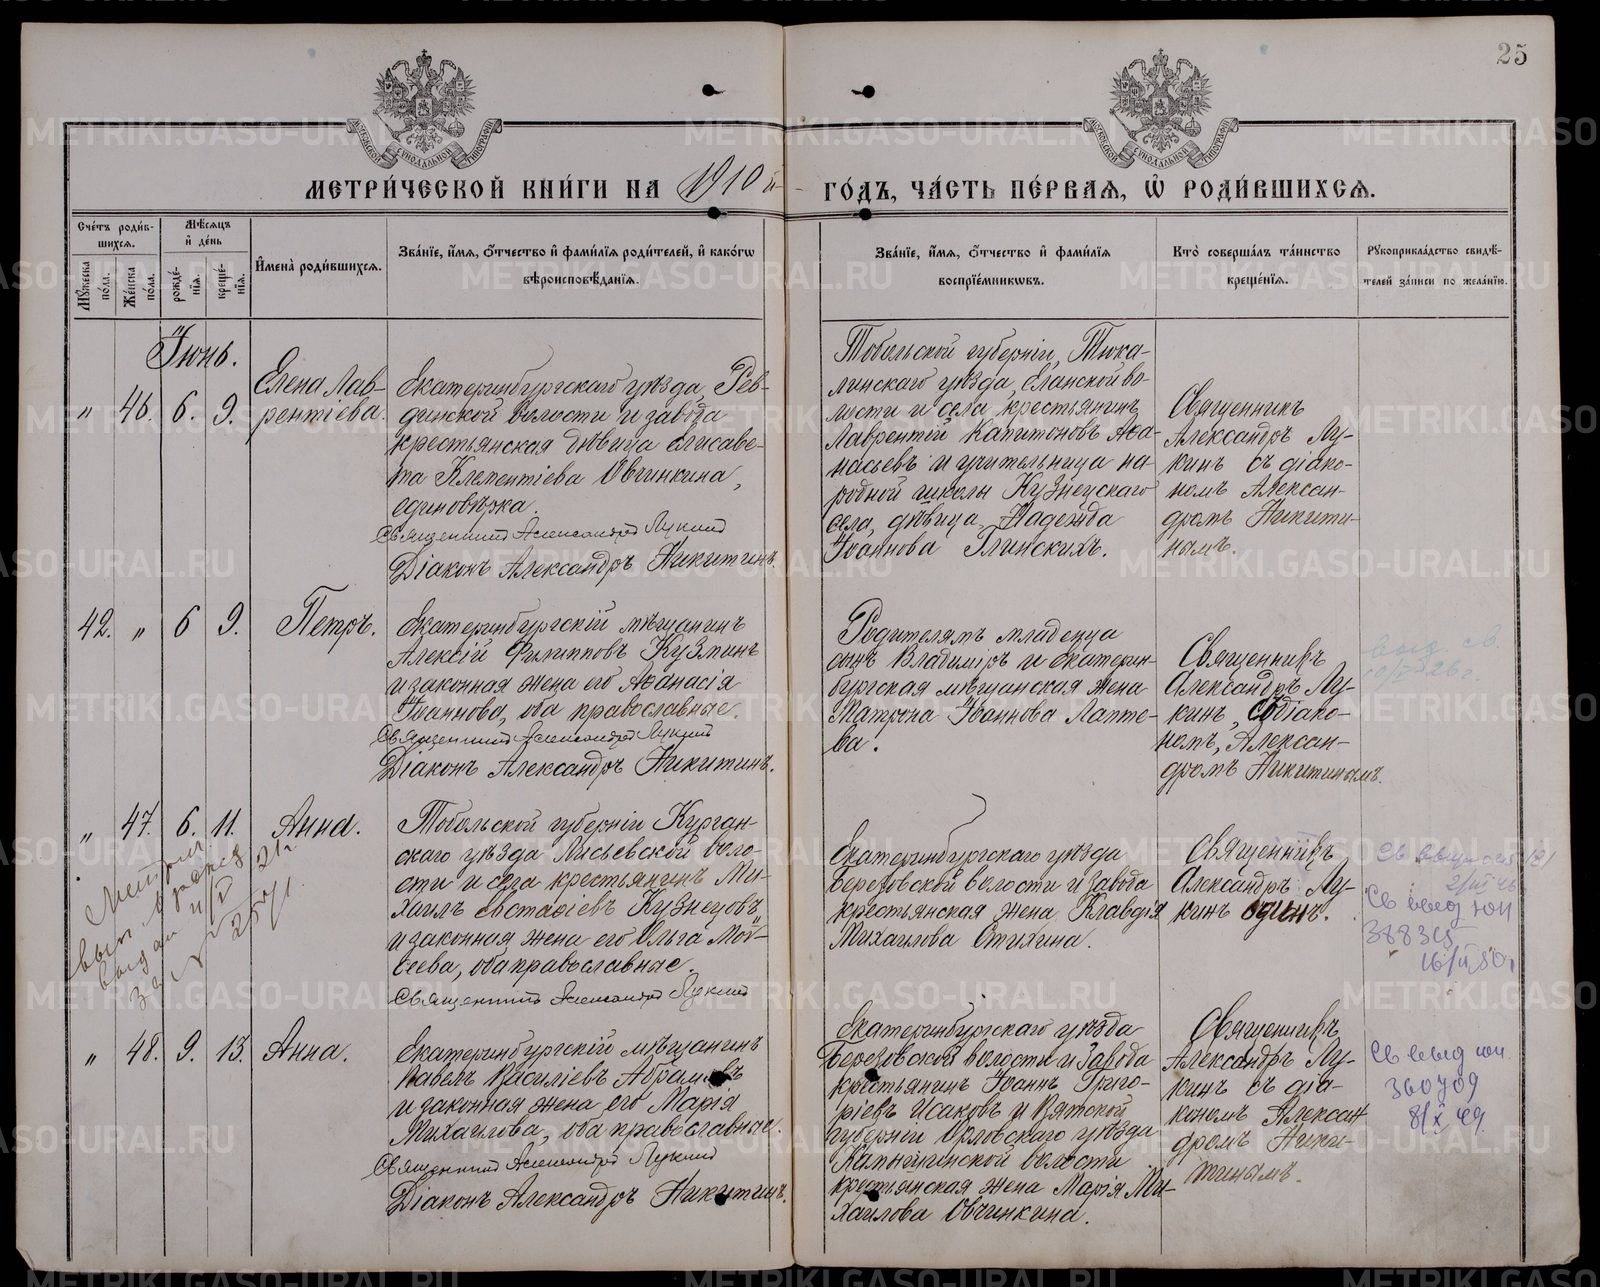 25
МОСКОВСКОЙ СѴНОДАЛЬНОЙ ТИПОГРАФІИ
МОСКОВСКОЙ СѴНОДАЛЬНОЙ ТИПОГРАФІИ
МЕТРИ́ЧЕСКОЙ КНИ́ГИ НА 1910 й ГО́ДЪ, ЧА́СТЬ ПЕ́РВАѦ, Ѡ҆ РОДИ́ВШИХСѦ.
Сче́тъ роди́в-
шихсѧ.
Мꙋ́жеска по́ла.
Же́нска по́ла.
Мѣ́сѧцъ
и҆ де́нь
рожде́-
нїѧ.
креще́-
нїѧ.
И҆мена̀ роди́вшихсѧ.
Зва́нїе, и҆́мѧ, ѻ҆́тчество и҆ фами́лїѧ роди́телей, и҆ како́гѡ
вѣроисповѣ́данїѧ.
Зва́нїе, и҆́мѧ, ѻ҆́тчество и҆ фами́лїѧ
воспрїе́мникѡвъ.
Кто̀ соверша́лъ та́инство
креще́нїѧ.
Рꙋкоприкла́дство свидѣ́-
телей за́писи по жела́нїю.
Іюнь.
" 46. 6. 9.
Елена Лав-
рентіева.
Екатеринбургскаго уѣзда, Рев-
динской волости и завода
крестьянская дѣвица Елисаве-
та Клементіева Овчинкина,
единовѣрка.
Священникъ Александръ Лукинъ
Діаконъ Александръ Никитинъ.
Тобольской губерніи, Тюка-
линскаго уѣзда, Еланской во-
лости и села крестьянинъ
Лаврентій Капитоновъ Аѳа-
насьевъ и учительница на-
родной школы Кузнецскаго
села, дѣвица, Надежда
Іоаннова Глинскихъ.
Священникъ
Александръ Лу-
кинъ съ діако-
номъ Алексан-
дромъ Никити-
нымъ.
42. " 6 9.
Петръ.
Екатеринбургскій мѣщанинъ
Алексій Филипповъ Кузминъ
и законная жена его Аѳанасія
Іоаннова, оба православные.
Священникъ Александръ Лукинъ
Діаконъ Александръ Никитинъ.
Родителямъ младенца
сынъ Владиміръ и екатерин-
бургская мѣщанская жена
Матрона Іоаннова Лапте-
ва.
Священникъ
Александръ Лу-
кинъ, съ діако-
номъ, Алексан-
дромъ Никитинымъ.
выд. св.
" 47. 6. 11.
Анна.
Тобольской губерніи Курган-
скаго уѣзда Лисьевской воло-
сти и села крестьянинъ Ми-
хаилъ Евстаѳіевъ Кузнецовъ
и законная жена его Ольга Мой-
сеева, оба православные.
Священникъ Александръ Лукинъ
Екатеринбургскаго уѣзда
Березовской волости и завода
крестьянская жена Клавдія
Михаилова Стихина.
Священникъ
Александръ Лу-
кинъ одинъ.
Св выд юн
38835
" 48. 9. 13.
Анна.
Екатеринбургскій мѣщанинъ
Павелъ Василіевъ Абрамовъ
и законная жена его Марія
Михаилова, оба православные.
Священникъ Александръ Лукинъ
Діаконъ Александръ Никитинъ.
Екатеринбургскаго уѣзда
Березовской волости и завода
крестьянинъ Іоаннъ Григо-
ріевъ Исаковъ и Вятской
губерніи Орловскаго уѣзда
волости
крестьянская жена Марія Ми-
хаилова Овчинкина.
Священникъ
Александръ Лу-
кинъ съ діа-
кономъ Алексан
дромъ Ники-
тинымъ.
Св выд юн
360709
8/X 49.